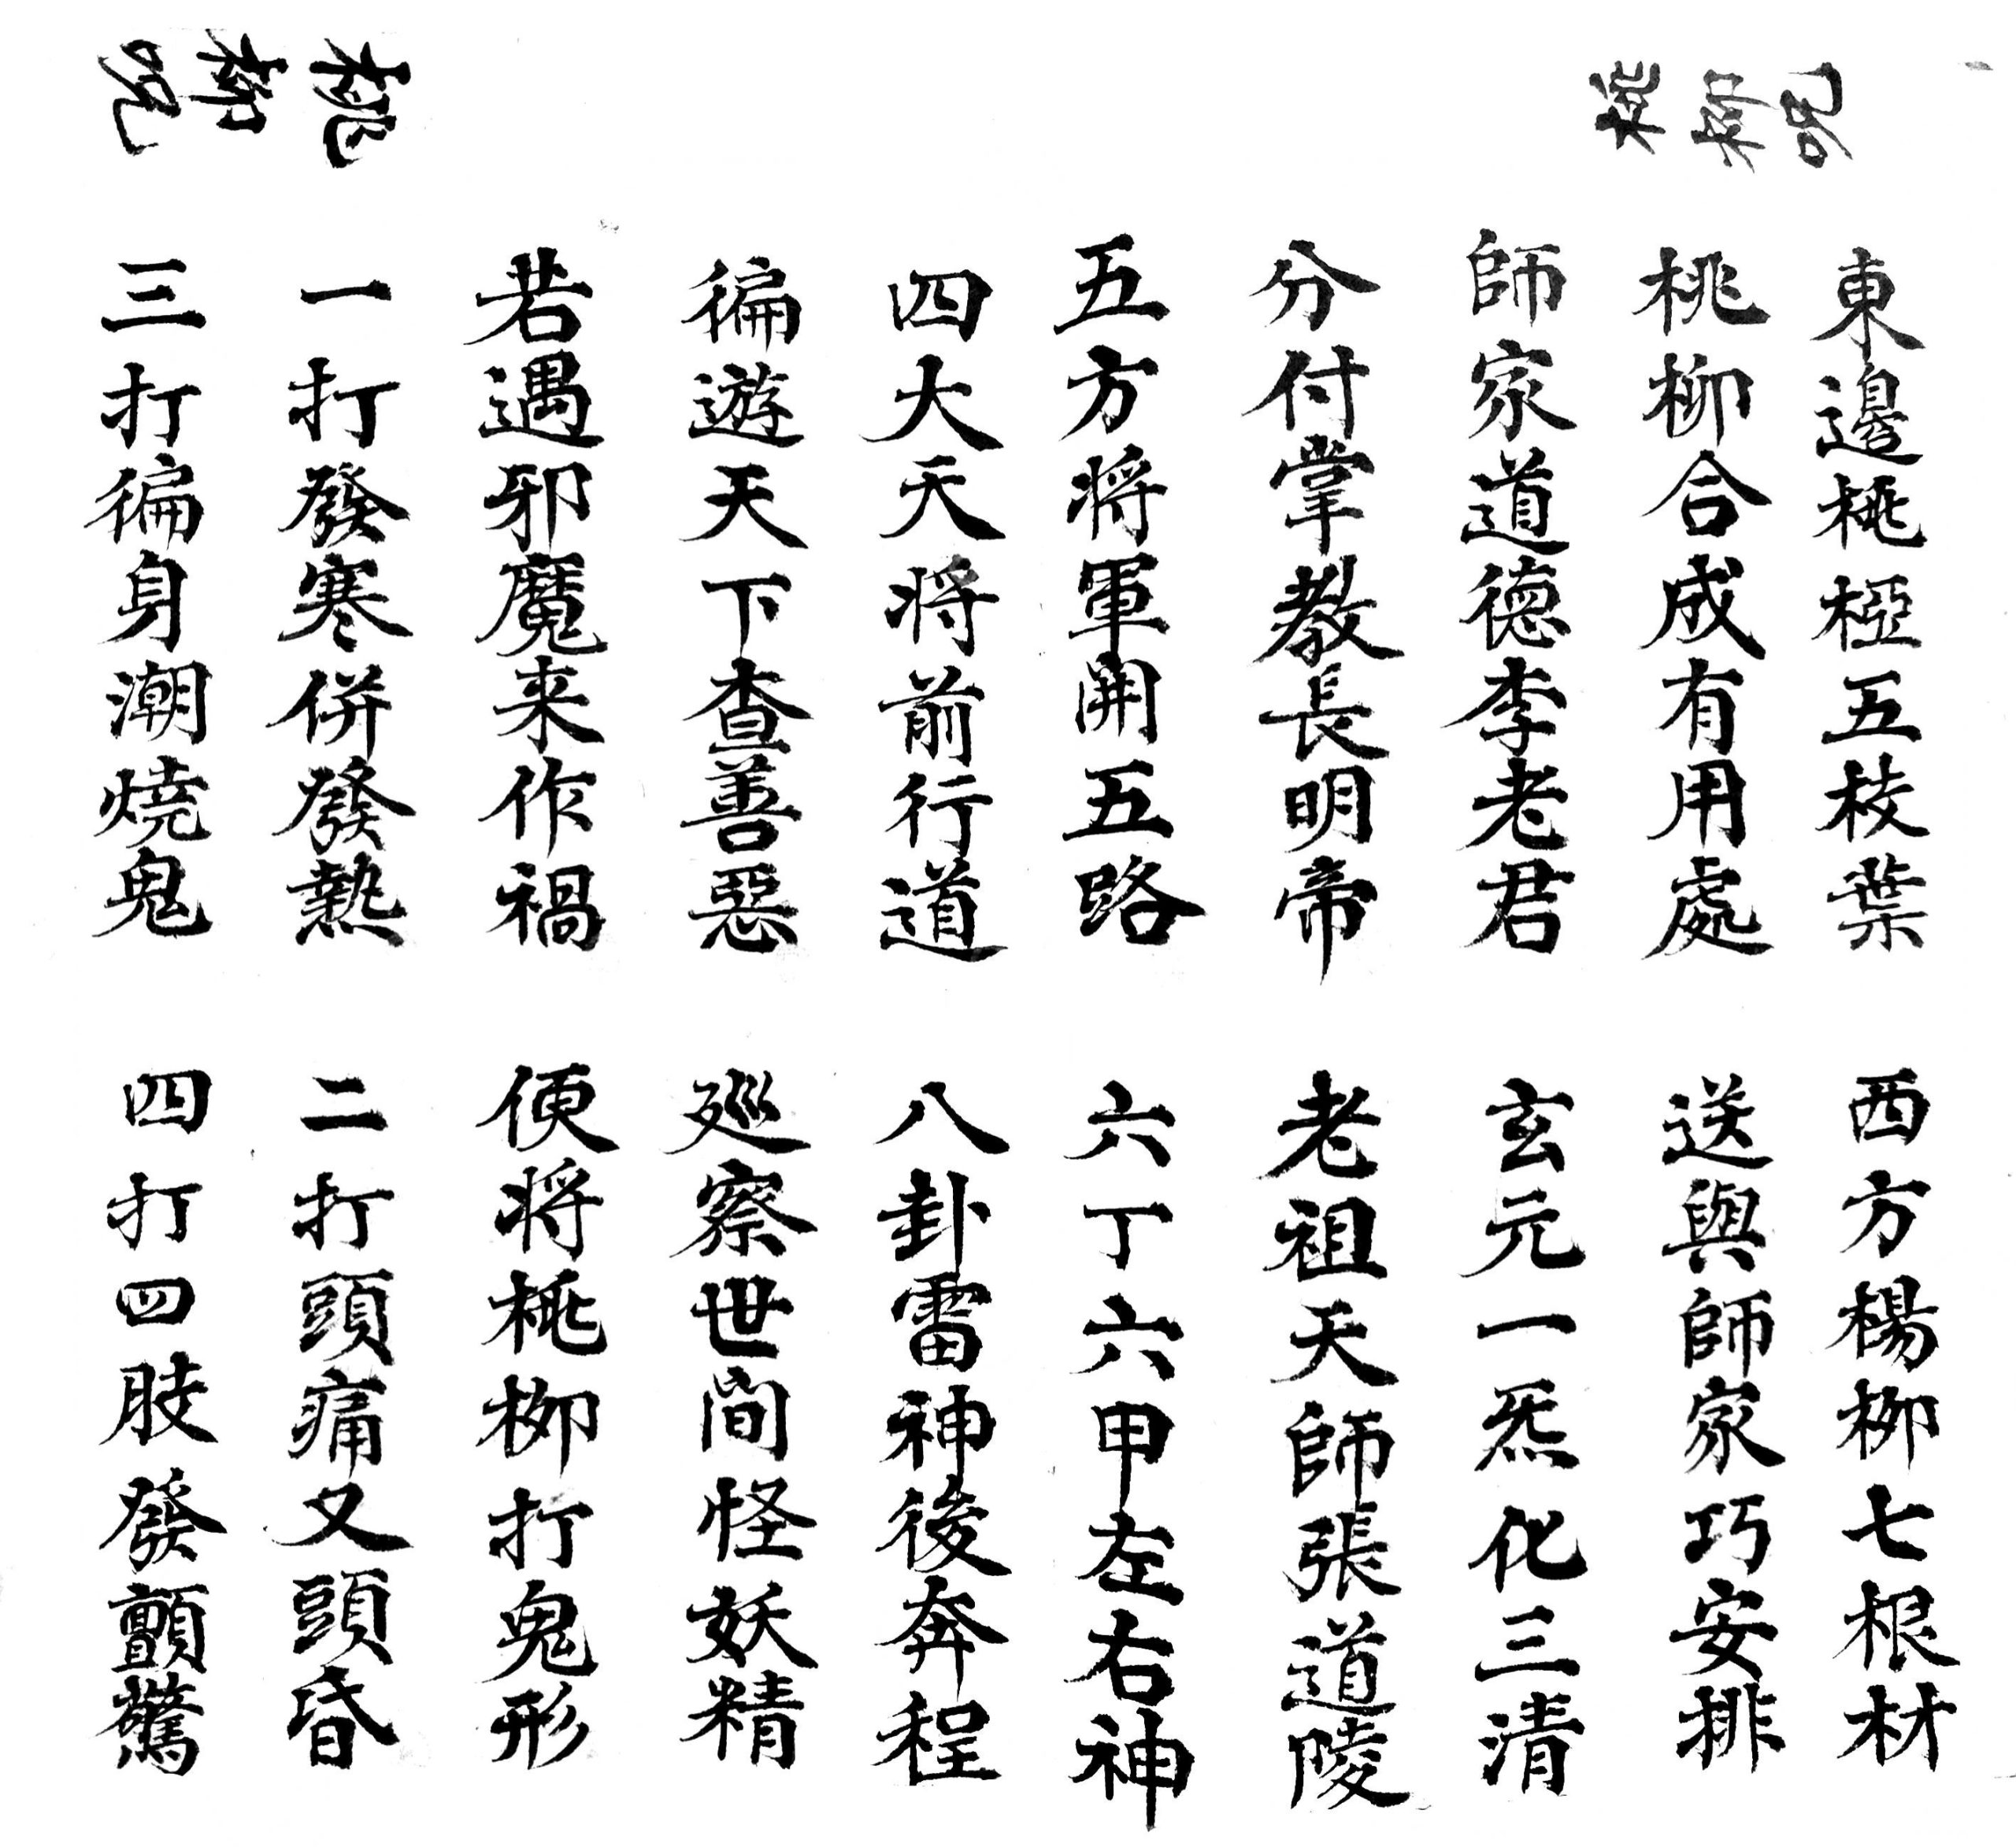 東邊桃椏五枝葉 西方楊柳七根材
桃柳合成有用處 送與師家巧安排
師家道德李老君 玄元一炁化三清
分付掌教長明帝 老祖天師張道陵
五方将軍開五路 六丁六甲左右神
四大天将前行道 八卦雷神後奔程
徧遊天下查善惡 廵察世間怪妖精
若遇邪魔来作禍 便将桃柳打鬼形
一打發寒併發熱 二打頭痛又頭昏
三打徧身潮燒鬼 四打四肢發顫驚